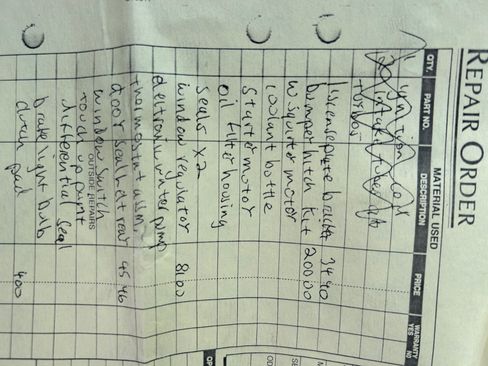 REPAIR ORDER
MATERIAL USED
QTY. PART NO. DESCRIPTION PRICE WARRANTY YES NO
1 ignition coil
license plate bracket 34 40
Bumper hitch kit 200 00
w. squirter motor
coolant bottle
starter motor
oil filter housing
seals x2
window regulator 81 00
electronic water pump
thermostat assm.
door seal hatrear 45 46
window switch
OUTSIDE REPAIRS
touch up paint
differential seal
brake light bulb
clutch pad 400